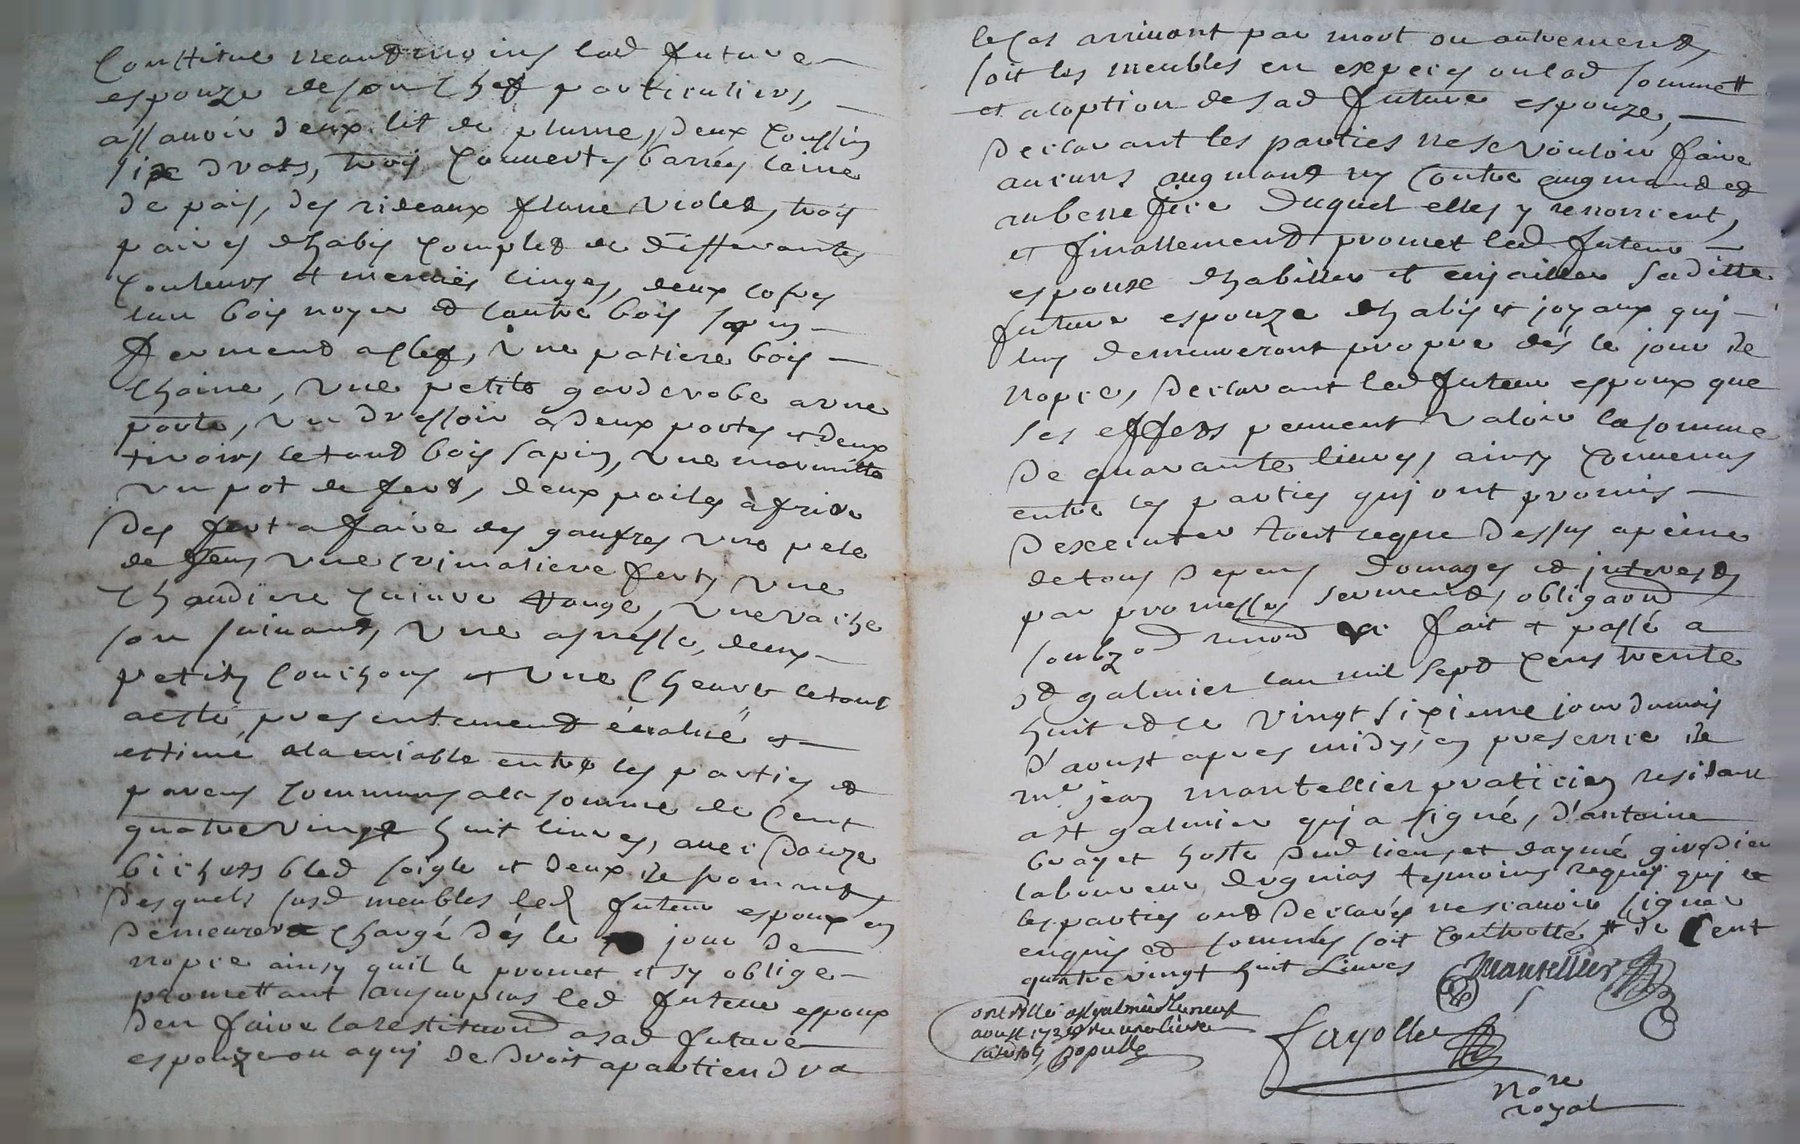 Constitue neandmoins lad future
espouze de son chef particuliers,
assauoir deux lit de plume, deux coussin
sixe drats, trois couuertes barrées laine
de pais, des rideaux flanie violed, trois
paires dhabis complet de differantes
couleurs et menües linges, deux cofres
lun bois noyer et lautre bois sapin
fermend a clef, vne patiere bois
chaine, vne petite garderobe a vne
porte, vn dressoir a deux portes et deux
tiroirs le toud bois sapin, vne marmitte
vn pot de fert, deux poiles a frire
des fert a faire des gaufres vne pele
de feus vne crimaliere fert, vne
chaudiere cuivre rouge, vne vache
son suiuant, vne asnesse, deux
petits couchons et vne cheure le tout
a esté presentemend éualué et
estimé a lamiable entre les parties et
parens communs a la somme de cent
quatre vingt huit liures, auec douze
bichets bled soigle et deux de froment
desquels susd meubles led futeur espoux en
demeurera chargé dés le jour de
nopce ainsy quil le promet et sy oblige
promettant au surplus led futeur espoux
den faire la restituon a sad future
espouze ou a quj de droit apartiendra
le cas arriuant par mort ou autrement,
soit les meubles en expeces ou lad somme
et a loption de sad future espouze,
declarant les parties ne se vouloir faire
aucuns augmant ny contre augmand et
au beneffice duquel elles y renoncent,
et finallemend promet led futeur
espoux dhabiller et enjoailler saditte
future espouze dhabis et joyaux quj
luy demeureront propre dés le jour de
nopce, declarant led futeur espoux que
ses effets peuuent valoir la somme
de quarante liures, ainsy conuenus
entre les parties quj ont promis
dexecuter tout ce que dessus a peine
de tous depens domages et jnterests
par promesses serments, obligaon
soubzon renon &c fait et passé a
st galmier lan mil sept cens trente
huit et le vingt sixieme jour du mois
d'aoust apres midy, en presence de
me jean mantellier praticien residant
a st galmier quj a signé, d'antoine
buayet hoste dud lieu, et daymé girodier
laboureur tesmoins requis quj et
les parties ont declarés ne scauoir signer
enquis et sommés soit controllé # de cent
quatre vingt huit Liures
Mantellier
controllé a st galmier le neuf
aoust 1738
Fayolle
nore
royal